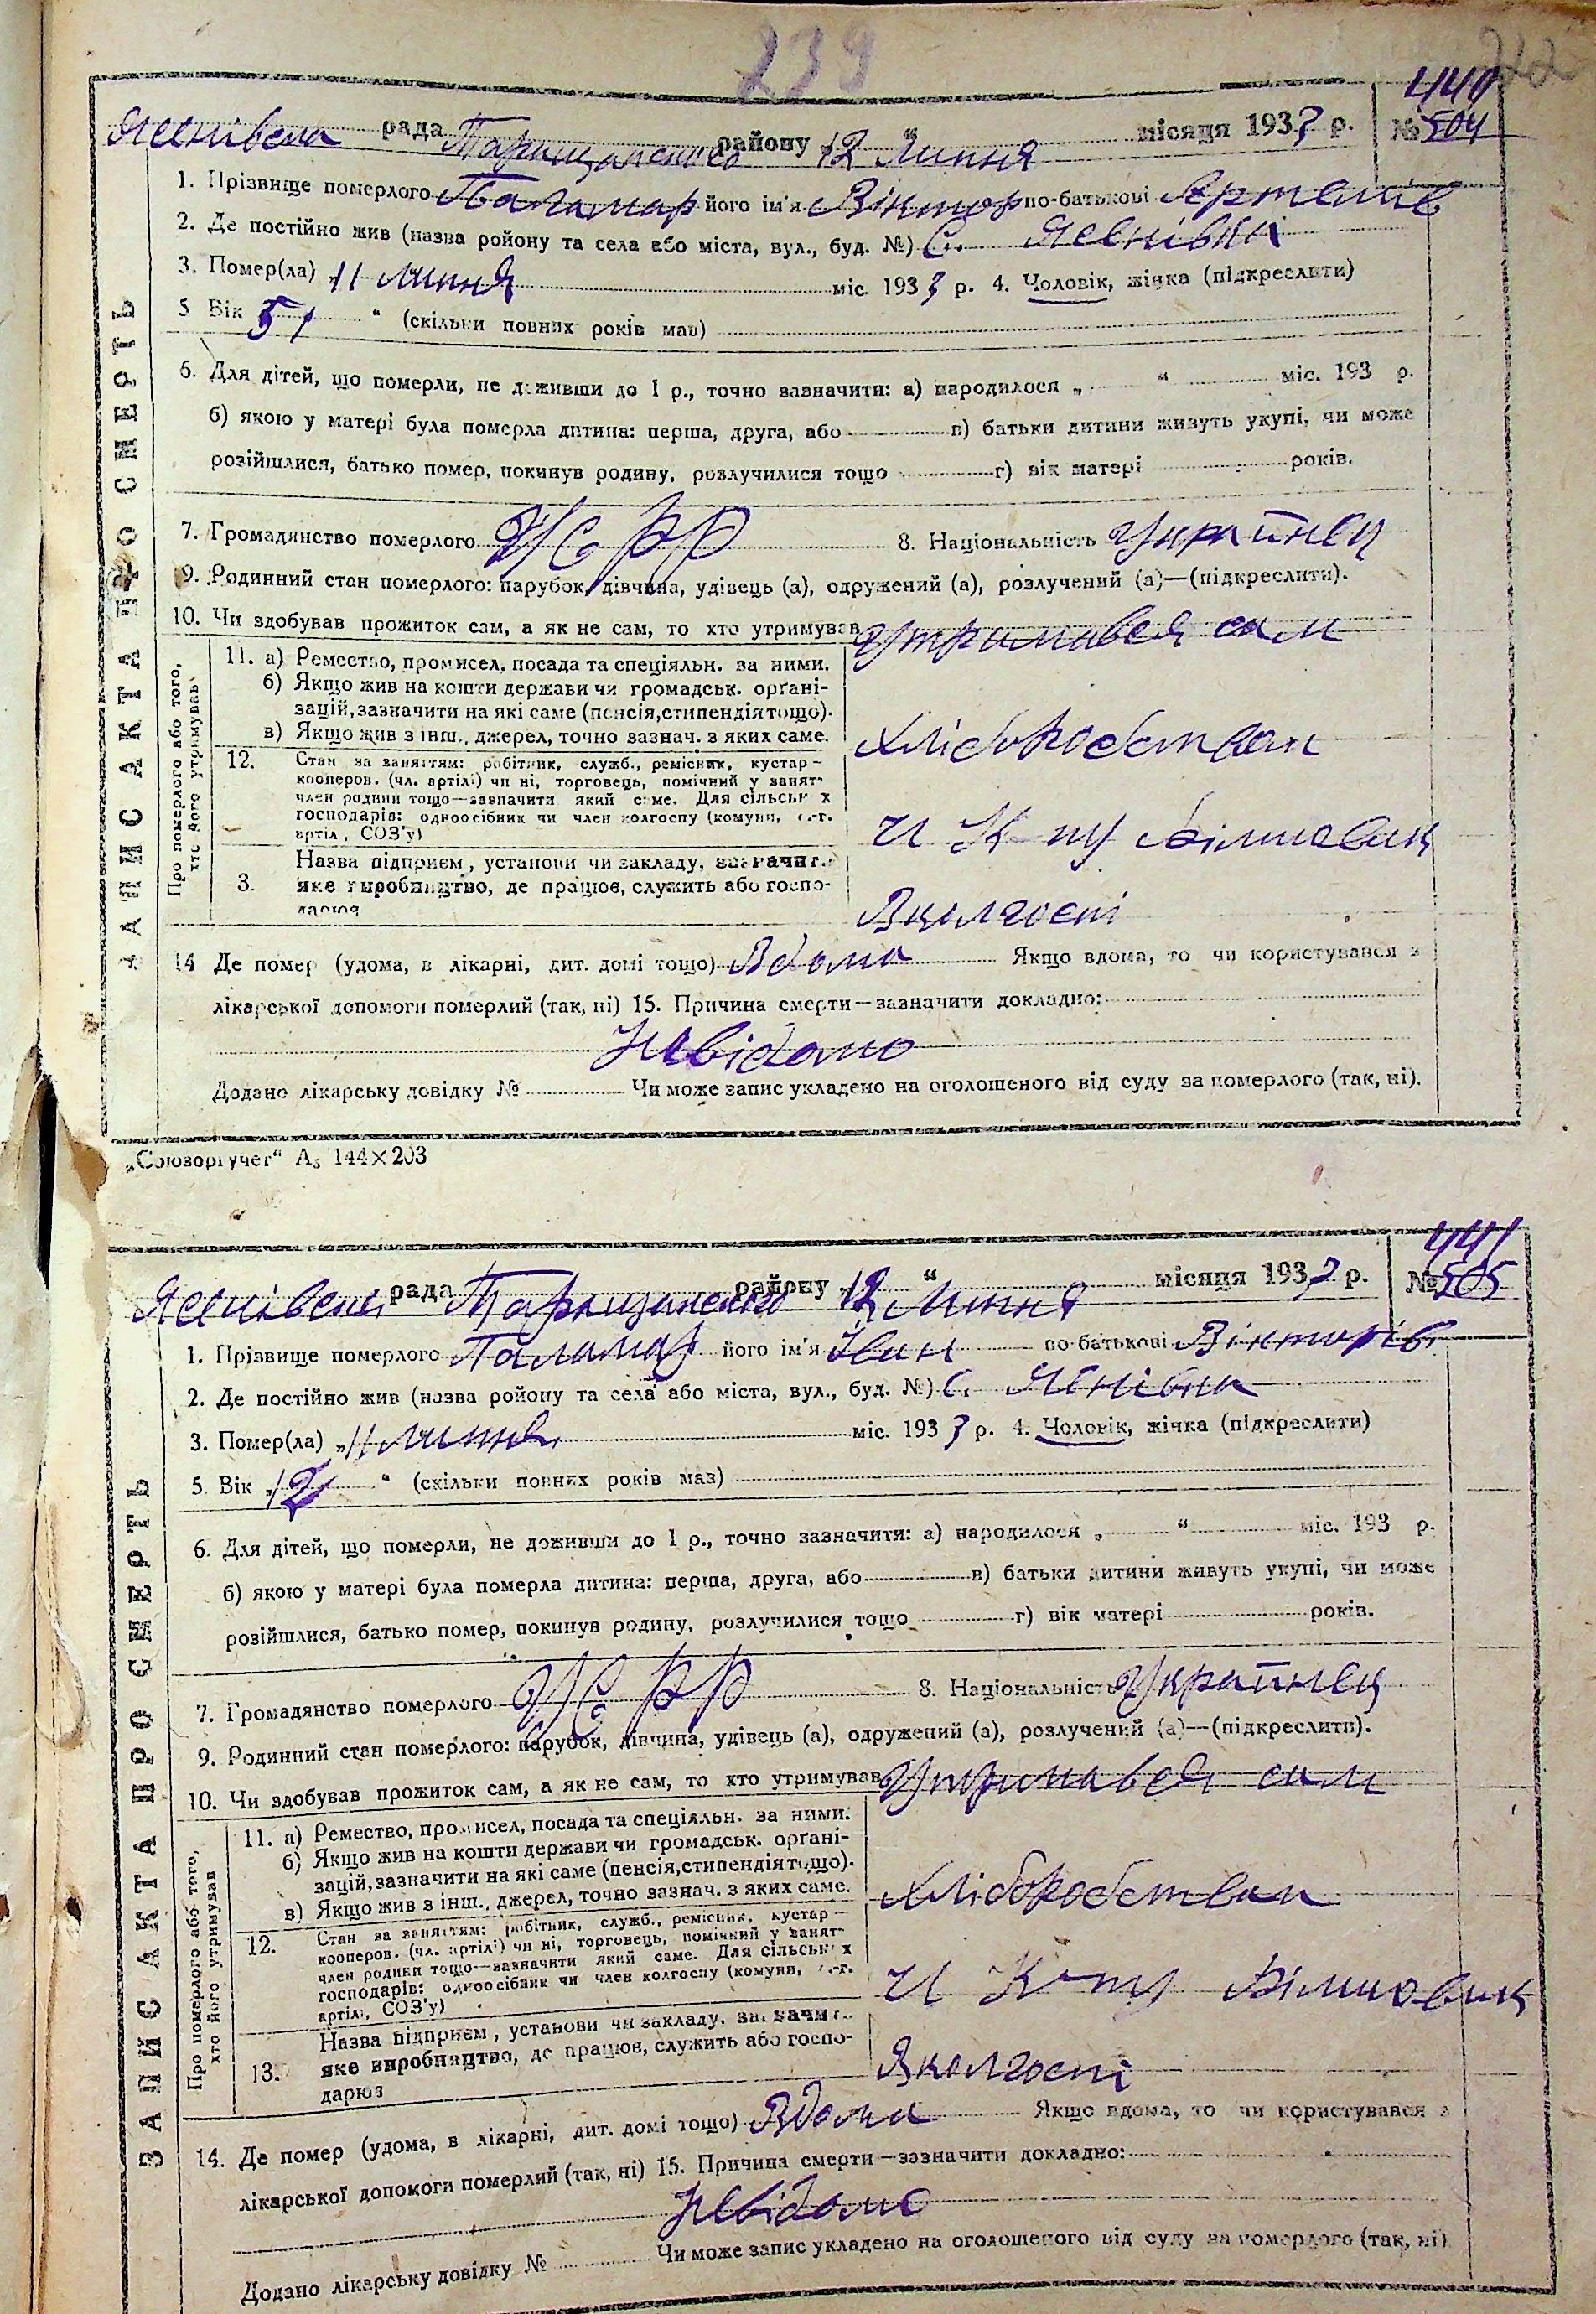 239
440
Ясенівська рада Таращанского району 12 Липня місяця 1933 р. № 504
ЗАПИС АКТА ПРО СМЕРТЬ
1. Прізвище померлого Паламар його ім'я Віктор по-батькові Артемів
2. Де постійно жив (назва ройону та села або міста, вул., буд. №) С. Ясенівка
3. Помер(ла) 11 липня міс. 1933 р. 4. Чоловік, жінка (підкреслити)
5 Вік 51 " (скільки повних років мав)
6. Для дітей, що померли, не доживши до 1 р., точно зазначити: а) народилося „ “ міс. 193 р.
б) якою у матері була померла дитина: перша, друга, або в) батьки дитини живуть укупі, чи може
розійшлися, батько помер, покинув родину, розлучилися тощо г) вік матері років.
7. Громадянство померлого УСРР 8. Національність Українец
9. Родинний стан померлого: парубок, дівчина, удівець (а), одружений (а), розлучений (а)—(підкреслити).
10. Чи здобував прожиток сам, а як не сам, то хто утримував утримався сам
Про померлого або того, хто його утримував
11. а) Ремество, промисел, посада та спеціяльн. за ними.
б) Якщо жив на кошти держави чи громадськ. орґані-
зацій, зазначити на які саме (пенсія, стипендія тощо).
в) Якщо жив з інш., джерел, точно зазнач. з яких саме. Хліборобством
12. Стан за заняттям: робітник, служб., ремісник, кустар—
кооперов. (чл. артілі) чи ні, торговець, помічний у занят-
член родини тощо—зазначити який саме. Для сільських
господарів: одноосібник чи член колгоспу (комуни, с.-г.
артілі, СОЗ'у) Ч К-пу Більшовик
3. Назва підприєм, установи чи закладу, зазначит.
яке виробництво, де працює, служить або госпо-
дарює В колгоспі
14 Де помер (удома, в лікарні, дит. домі тощо) Вдома Якщо вдома, то чи користувався з
лікарської допомоги померлий (так, ні) 15. Причина смерти—зазначити докладно:
Невідомо
Додано лікарську довідку № Чи може запис укладено на оголошеного від суду за померлого (так, ні).
„Союзоргучет“ А₅ 144×203
441
Ясенівська рада Таращанского району 12 “ Липня місяця 1933 р. № 505
ЗАПИС АКТА ПРО СМЕРТЬ
1. Прізвище померлого Паламар його ім'я Іван по-батькові Вікторів
2. Де постійно жив (назва ройону та села або міста, вул., буд. №) С. Ясенівка
3. Помер(ла) „11 липня міс. 1933 р. 4. Чоловік, жінка (підкреслити)
5. Вік „12 “ (скільки повних років маз)
6. Для дітей, що померли, не доживши до 1 р., точно зазначити: а) народилося „ “ міс. 193 р.
б) якою у матері була померла дитина: перша, друга, або в) батьки дитини живуть укупі, чи може
розійшлися, батько помер, покинув родину, розлучилися тощо г) вік матері років.
7. Громадянство померлого УСРР 8. Національність Українец
9. Родинний стан померлого: парубок, дівчина, удівець (а), одружений (а), розлучений (а)—(підкреслити).
10. Чи здобував прожиток сам, а як не сам, то хто утримував Утримався сам
Про померлого або того, хто його утримував
11. а) Ремество, промисел, посада та спеціяльн. за ними.
б) Якщо жив на кошти держави чи громадськ. орґані-
зацій, зазначити на які саме (пенсія, стипендія тощо).
в) Якщо жив з інш., джерел, точно зазнач. з яких саме. Хліборобством
12. Стан за заняттям: робітник, служб., ремісник, кустар—
кооперов. (чл. артілі) чи ні, торговець, помічний у занят-
член родини тощо—зазначити який саме. Для сільських
господарів: одноосібник чи член колгоспу (комуни, с.-г.
артілі, СОЗ'у) Ч К-пу Більшовик
13. Назва підприєм, установи чи закладу, зазначит.
яке виробництво, де працює, служить або госпо-
дарює В колгоспі
14. Де помер (удома, в лікарні, дит. домі тощо) Вдома Якщо вдома, то чи користувався з
лікарської допомоги померлий (так, ні) 15. Причина смерти—зазначити докладно:
Невідомо
Додано лікарську довідку № Чи може запис укладено на оголошеного від суду за померлого (так, ні)